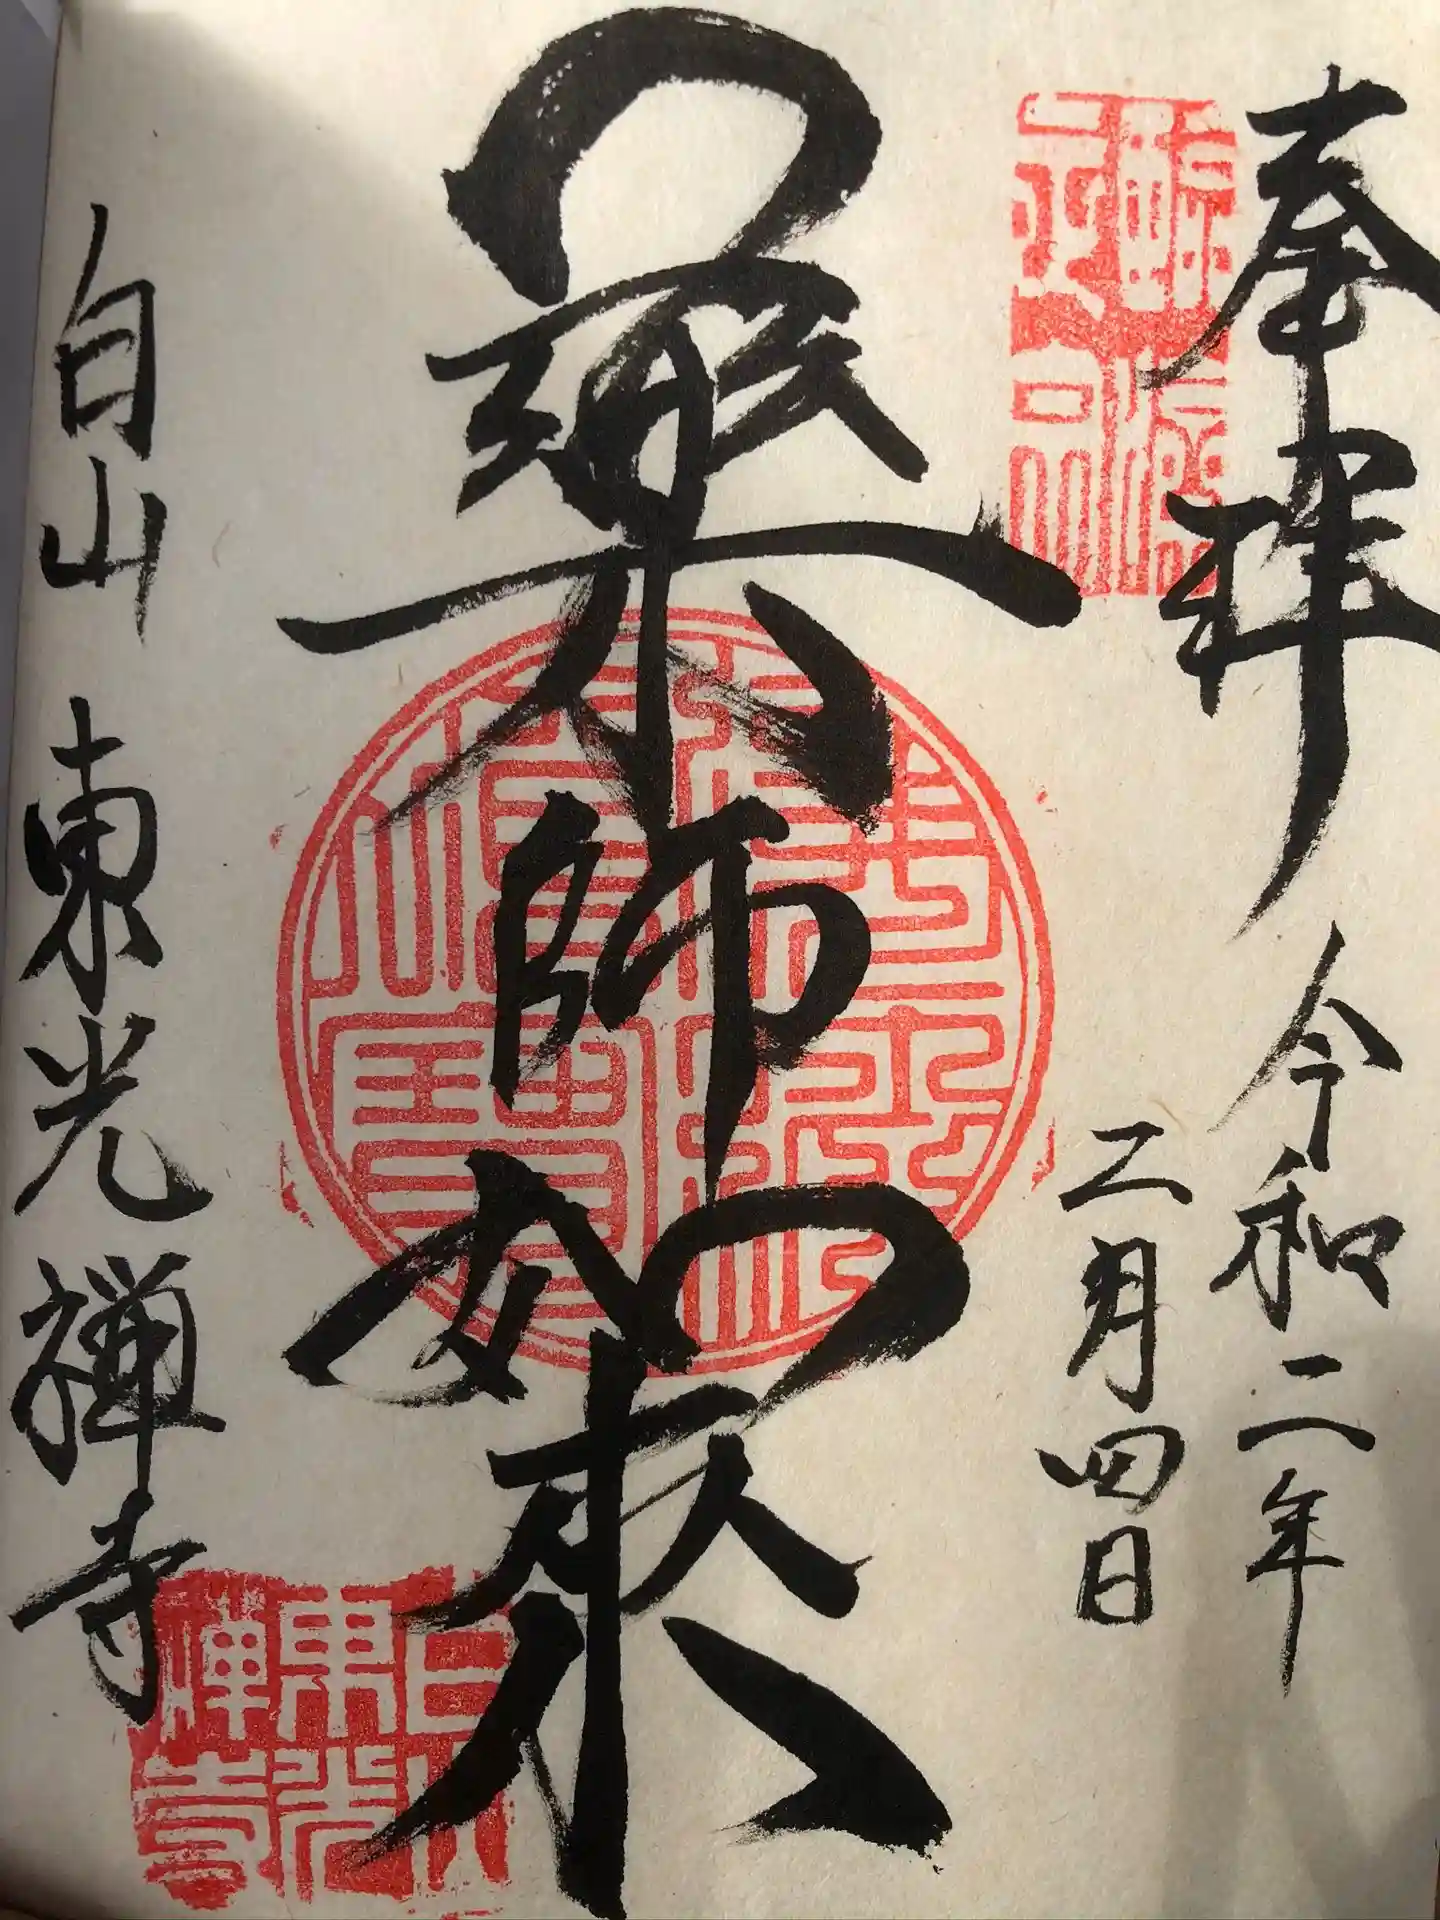 奉拝
令和二年
二月四日
薬師如来
白山 東光禅寺
白山東光禅寺
佛法僧寶